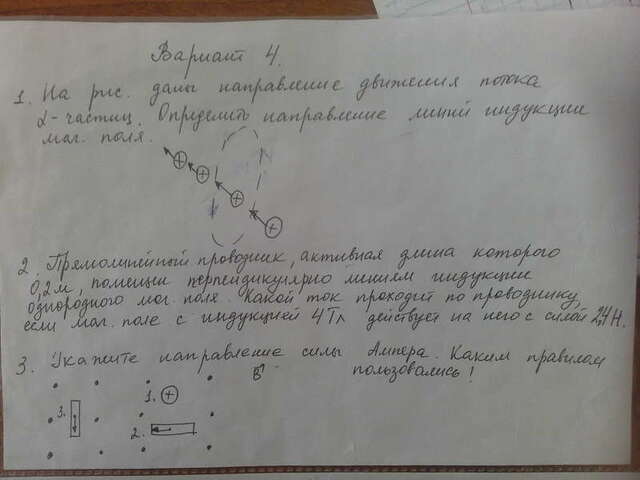 Вариант 4.
1. На рис. даны направление движения потока
α-частиц. Определить направление линий индукции
маг. поля.
2. Прямолинейный проводник, активная длина которого
0,2 м, помещен перпендикулярно линиям индукции
однородного маг. поля. Какой ток проходит по проводнику,
если маг. поле с индукцией 4 Тл действует на него с силой 2,4 Н.
3. Укажите направление силы Ампера. Каким правилом
пользовались!
B
1.
3.
2.